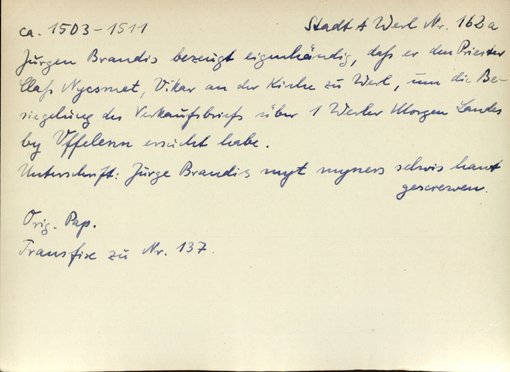 ca. 1503-1511 Stadt A Werl Nr. 162a
Jürgen Brandis bezeugt eigenhändig, daß er den Priester
Claß Nycsmet, Vikar an der Kirche zu Werl, um die Be-
siegelung des Verkaufsbriefs über 1 Werler Morgen Landes
by Uffelenn ersucht habe.
Unterschrift: Jürge Brandis myt myners selvis hant
gescrewen.
Orig. Pap.
Transfixe zu Nr. 137.